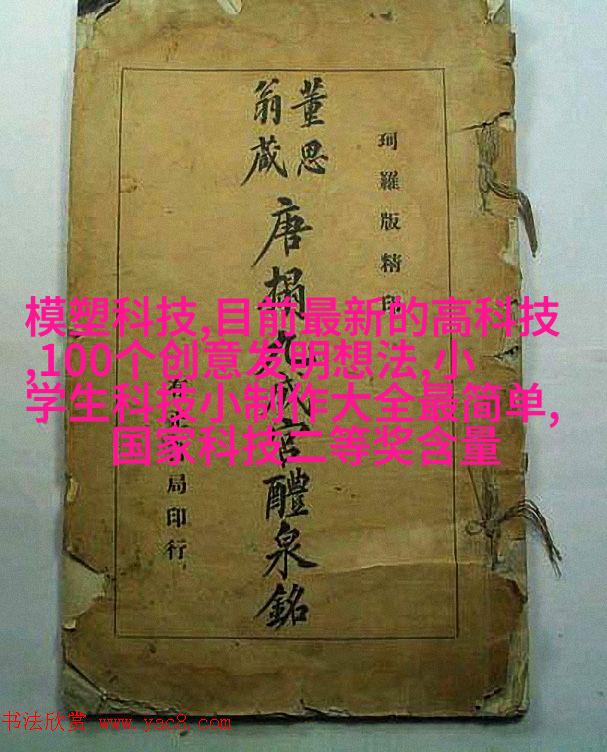 董思
翁藏
唐搨九成宮醴泉銘
珂羅版精印
有正書局印行
模塑科技,目前最新的高科技
,100个创意发明想法,小
学生科技小制作大全最简单,
国家科技二等奖含量
书法欣赏 www.yac8.com